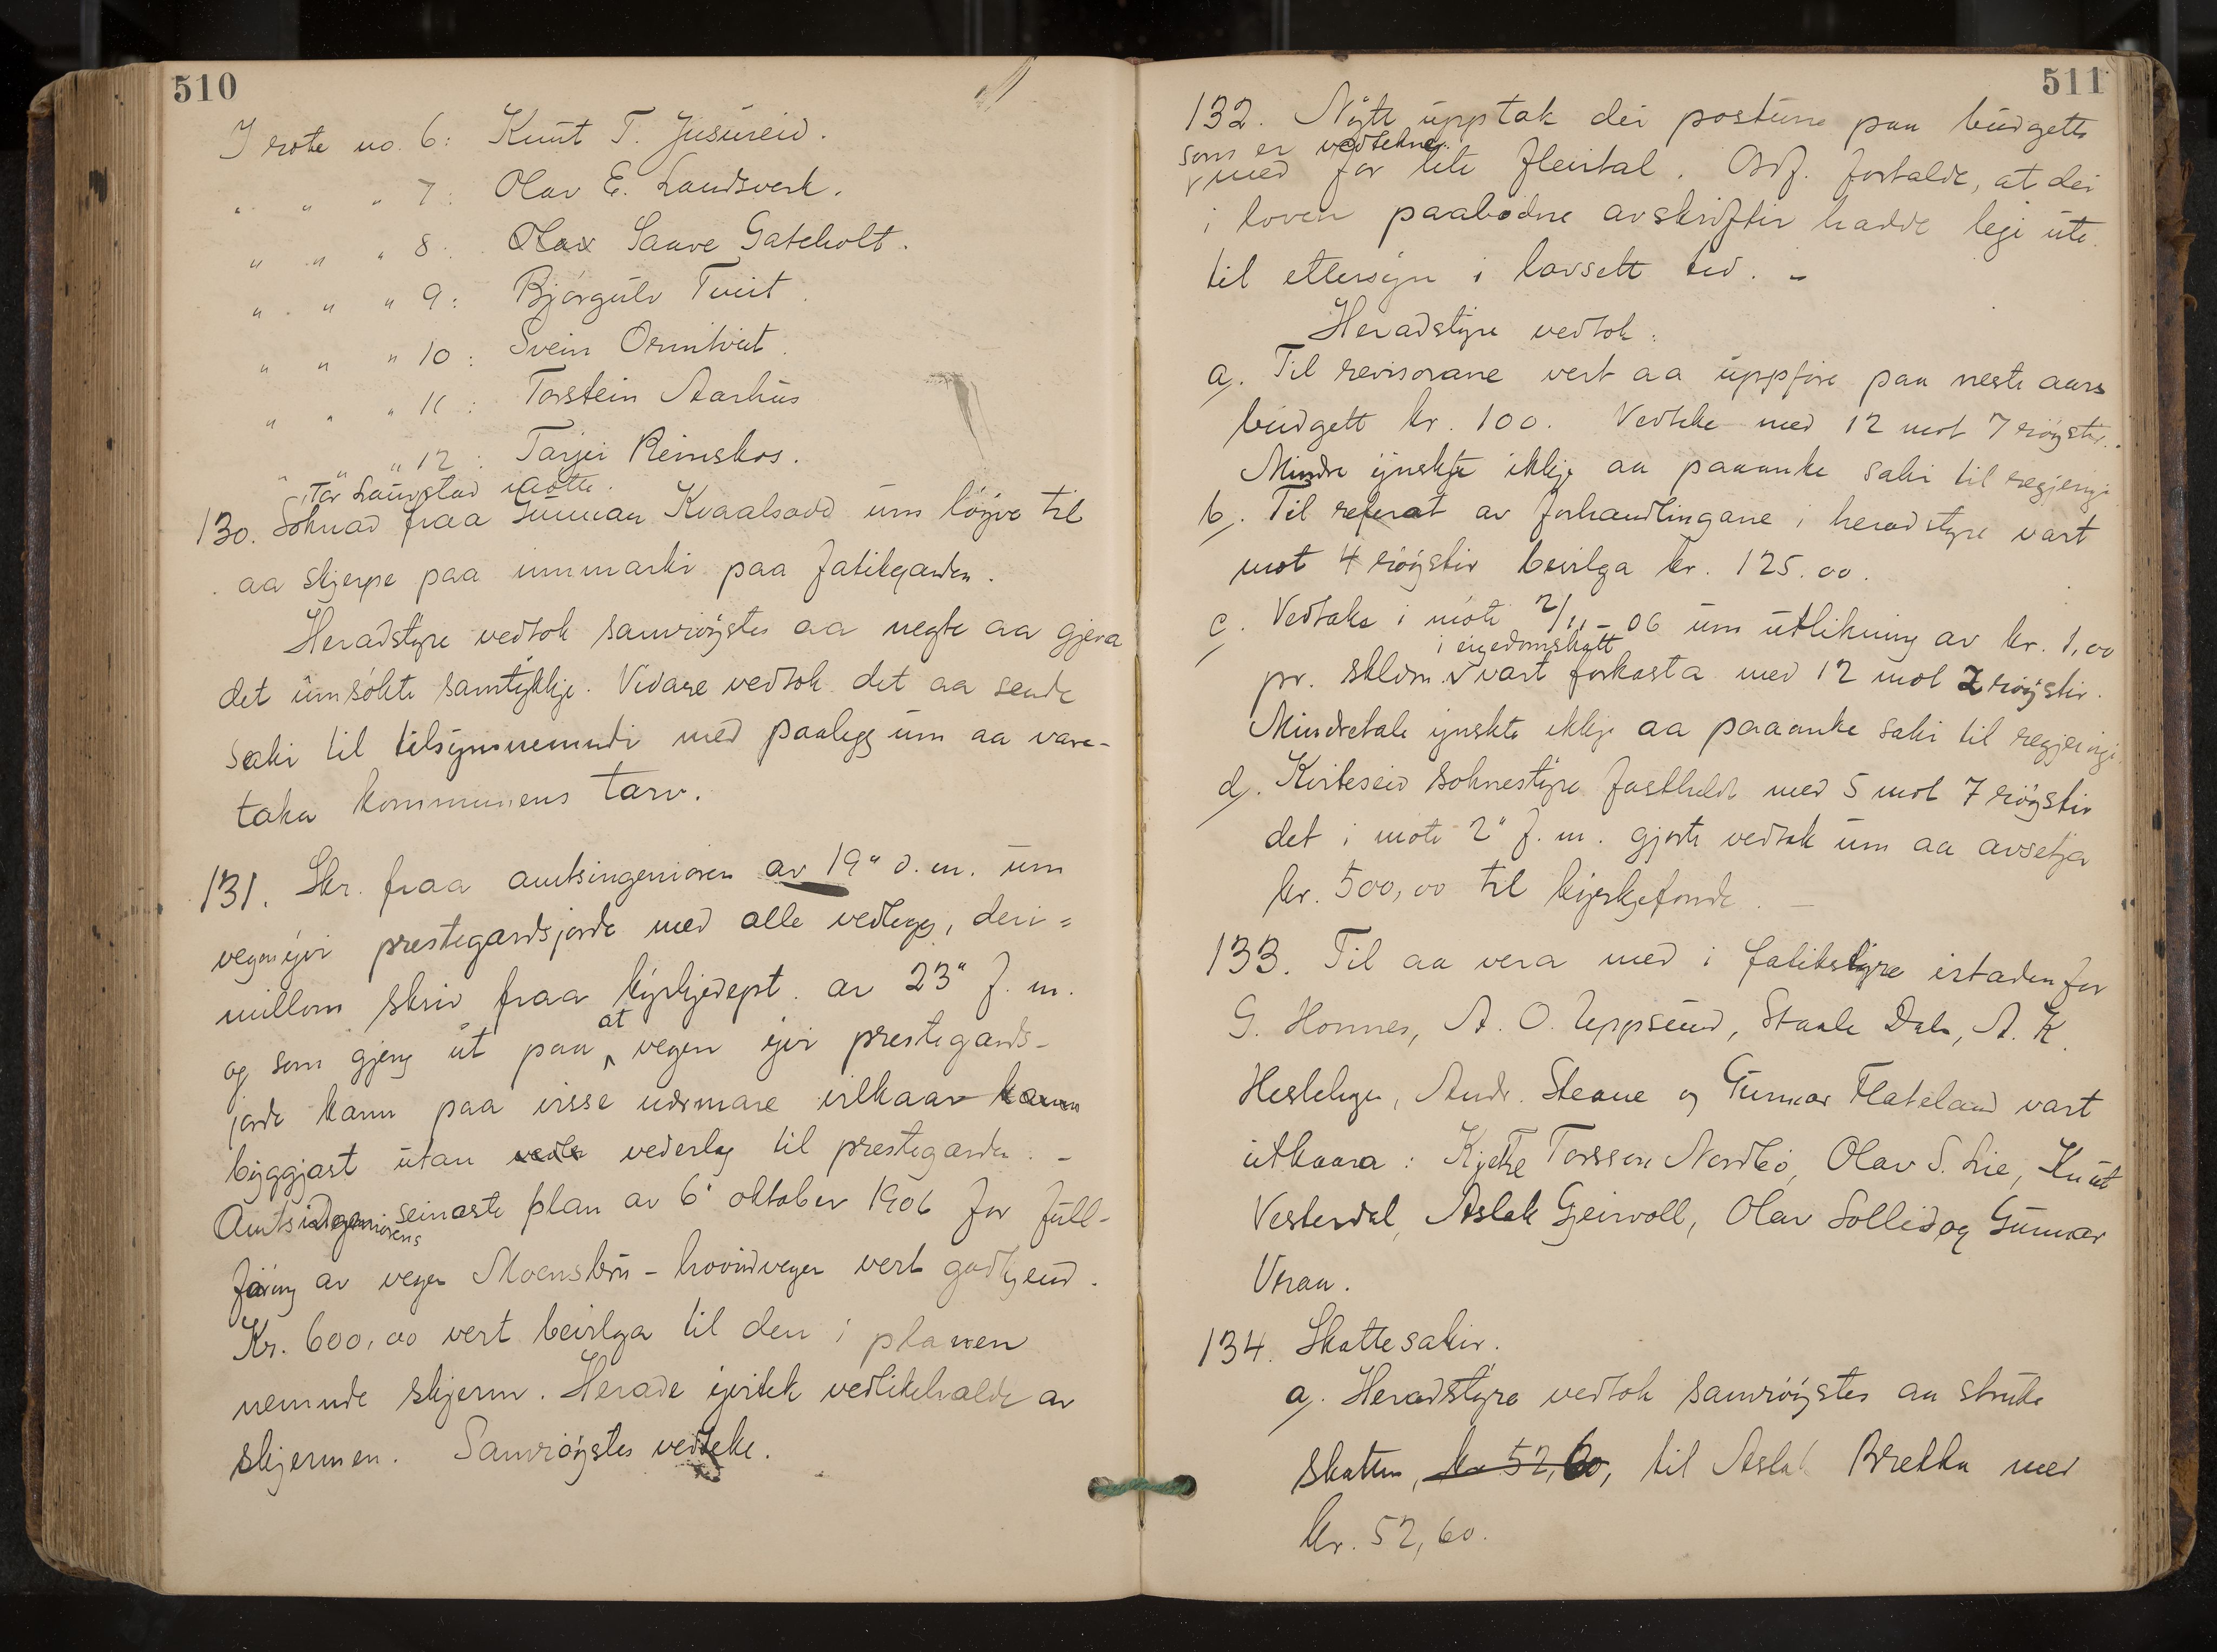 510
I rote no. 6: Knut T. Jusureid.
" " " 7: Olav E. Landsverk.
" " " 8. Olav Saave Gateholt.
" " " 9: Bjørgulv Tveit.
" " " 10: Svein Ormtveit.
" " " 11: Torstein Aarhus
" " " 12: Tarjei Rimskos.
Tor Laurstad møtte.
130. Søknad fraa Gunnar Kvaalsodd um løyve til
aa skjerpe paa innmarki paa fatikgarden.
Heradstyre vedtok samrøystes aa negte aa gjeva
det umsøkte samtykkje. Vidare vedtok det aa sende
saki til tilsynsnemndi med paalegg um aa vare-
taka kommunens tarv.
131. Skr. fraa amtsingeniøren av 19" d. m. um
vegen yvi prestegardsjorde med alle vedlegg, deri=
millom skriv fraa kyrkjedept. av 23" f. m.
og som gjeng ut paa at vegen yvi prestegards-
jorde kann paa visse nærmare vilkaar kann
byggjast utan vedla vederlag til prestegarden. -
Amtsingeniørens seinaste plan av 6" oktober 1906 for full-
føring av vegen Moenskru - hovudvegen vert godkjend.
Kr. 600,00 vert beivlga til den i planen
nemnde skjerm. Herade yvitek vedlikehalde av
skjermen. Samrøystes vedteke.
511
132. Nytt upptak dei postune paa budgette
som er vedtekne
med for lite fleirtal. Ordf. fortalde, at dei
i loven paabodne avskriftir hadde legi ute
til ettersyn i lovsett tid. -
Heradstyre vedtok:
a). Til revisorane vert aa uppføre paa neste aars
budgett kr. 100. Vedteke med 12 mot 7 røystir.
Mindre ynskte ikkje aa paaanke saki til regjeringi
b). Til referat av forhandlingane i heradstyre vart
mot 4 røystir beivlga kr. 125.00.
c). Vedtake i møte 2/11 - 06 um utlikning av kr. 1,00
i eigedomskatt
pr. skldm. vart forkasta med 12 mot 7 røystir.
Mindretale ynskte ikkje aa paaanke saki til regjeringi.
d). Kviteseid soknestyre fastheldt med 5 mot 7 røystir
det i møte 2" f. m. gjorte vedtak um aa avsetja
kr. 500,00 til kyrkjefonde. -
133. Til aa vera med i fatikstyre istaden for
G. Honnes, A. O. Uppsund, Staale Dale, A. K.
Hestehegn, Andr. Steane og Gunnar Flateland vart
utkaara: Kjetil Torsson Nordbø, Olav S. Lie, Knut
Vesterdal, Aslak Geirvoll, Olav Sollid og Gunnar
Vraa.
134. Skattesakir.
a). Heradstyre vedtok samrøystes aa struke
skatten, kr 52,60, til Aslak Brekka med
kr. 52,60.